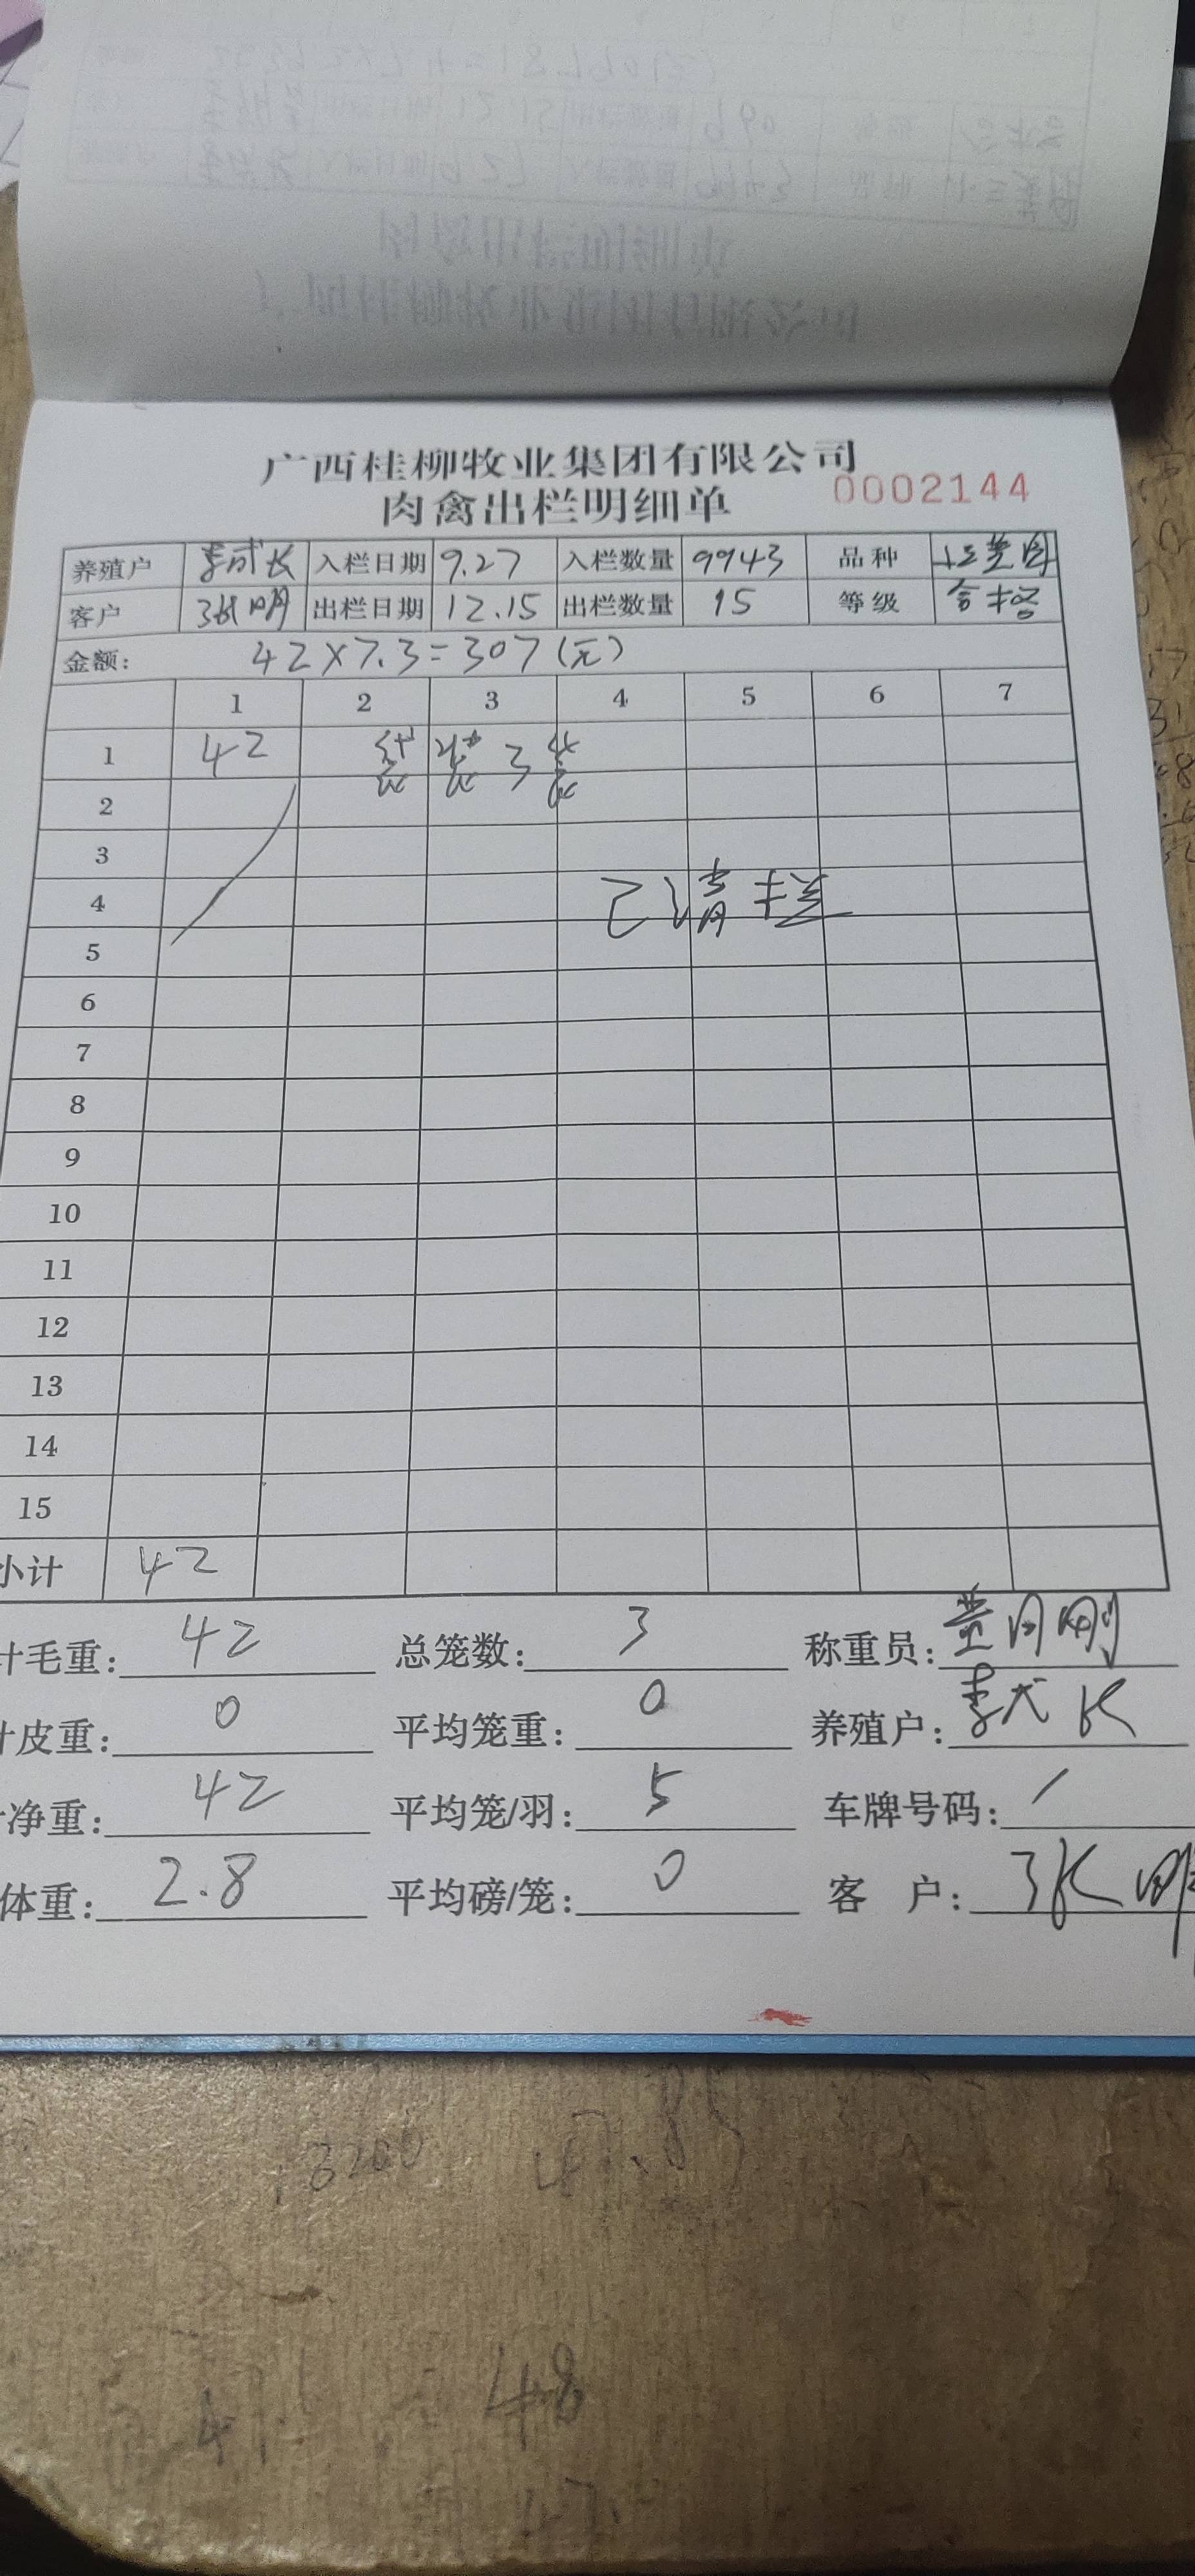 广西桂柳牧业集团有限公司
肉禽出栏明细单 0002144
养殖户 李成长 入栏日期 9.27 入栏数量 9943 品种
客户 张明 出栏日期 12.15 出栏数量 15 等级 合格
金额: 42×7.3=307(元)
1 2 3 4 5 6 7
1 42 袋装3袋
2
3
4 已清栏
5
6
7
8
9
10
11
12
13
14
15
小计 42
计毛重: 42 总笼数: 3 称重员:
皮重: 0 平均笼重: 0 养殖户: 李成长
净重: 42 平均笼/羽: 5 车牌号码: /
体重: 2.8 平均磅/笼: 0 客户: 张明
48